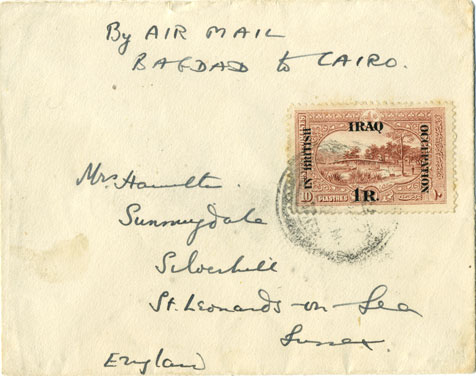 By AIR MAIL
BAGDAD to CAIRO.
IRAQ
IN BRITISH
OCCUPATION
1 R.
10 PIASTRES
Mrs Hamilton
Sunnnydale
Silverhill
St. Leonards-on-Sea
Sussex.
England